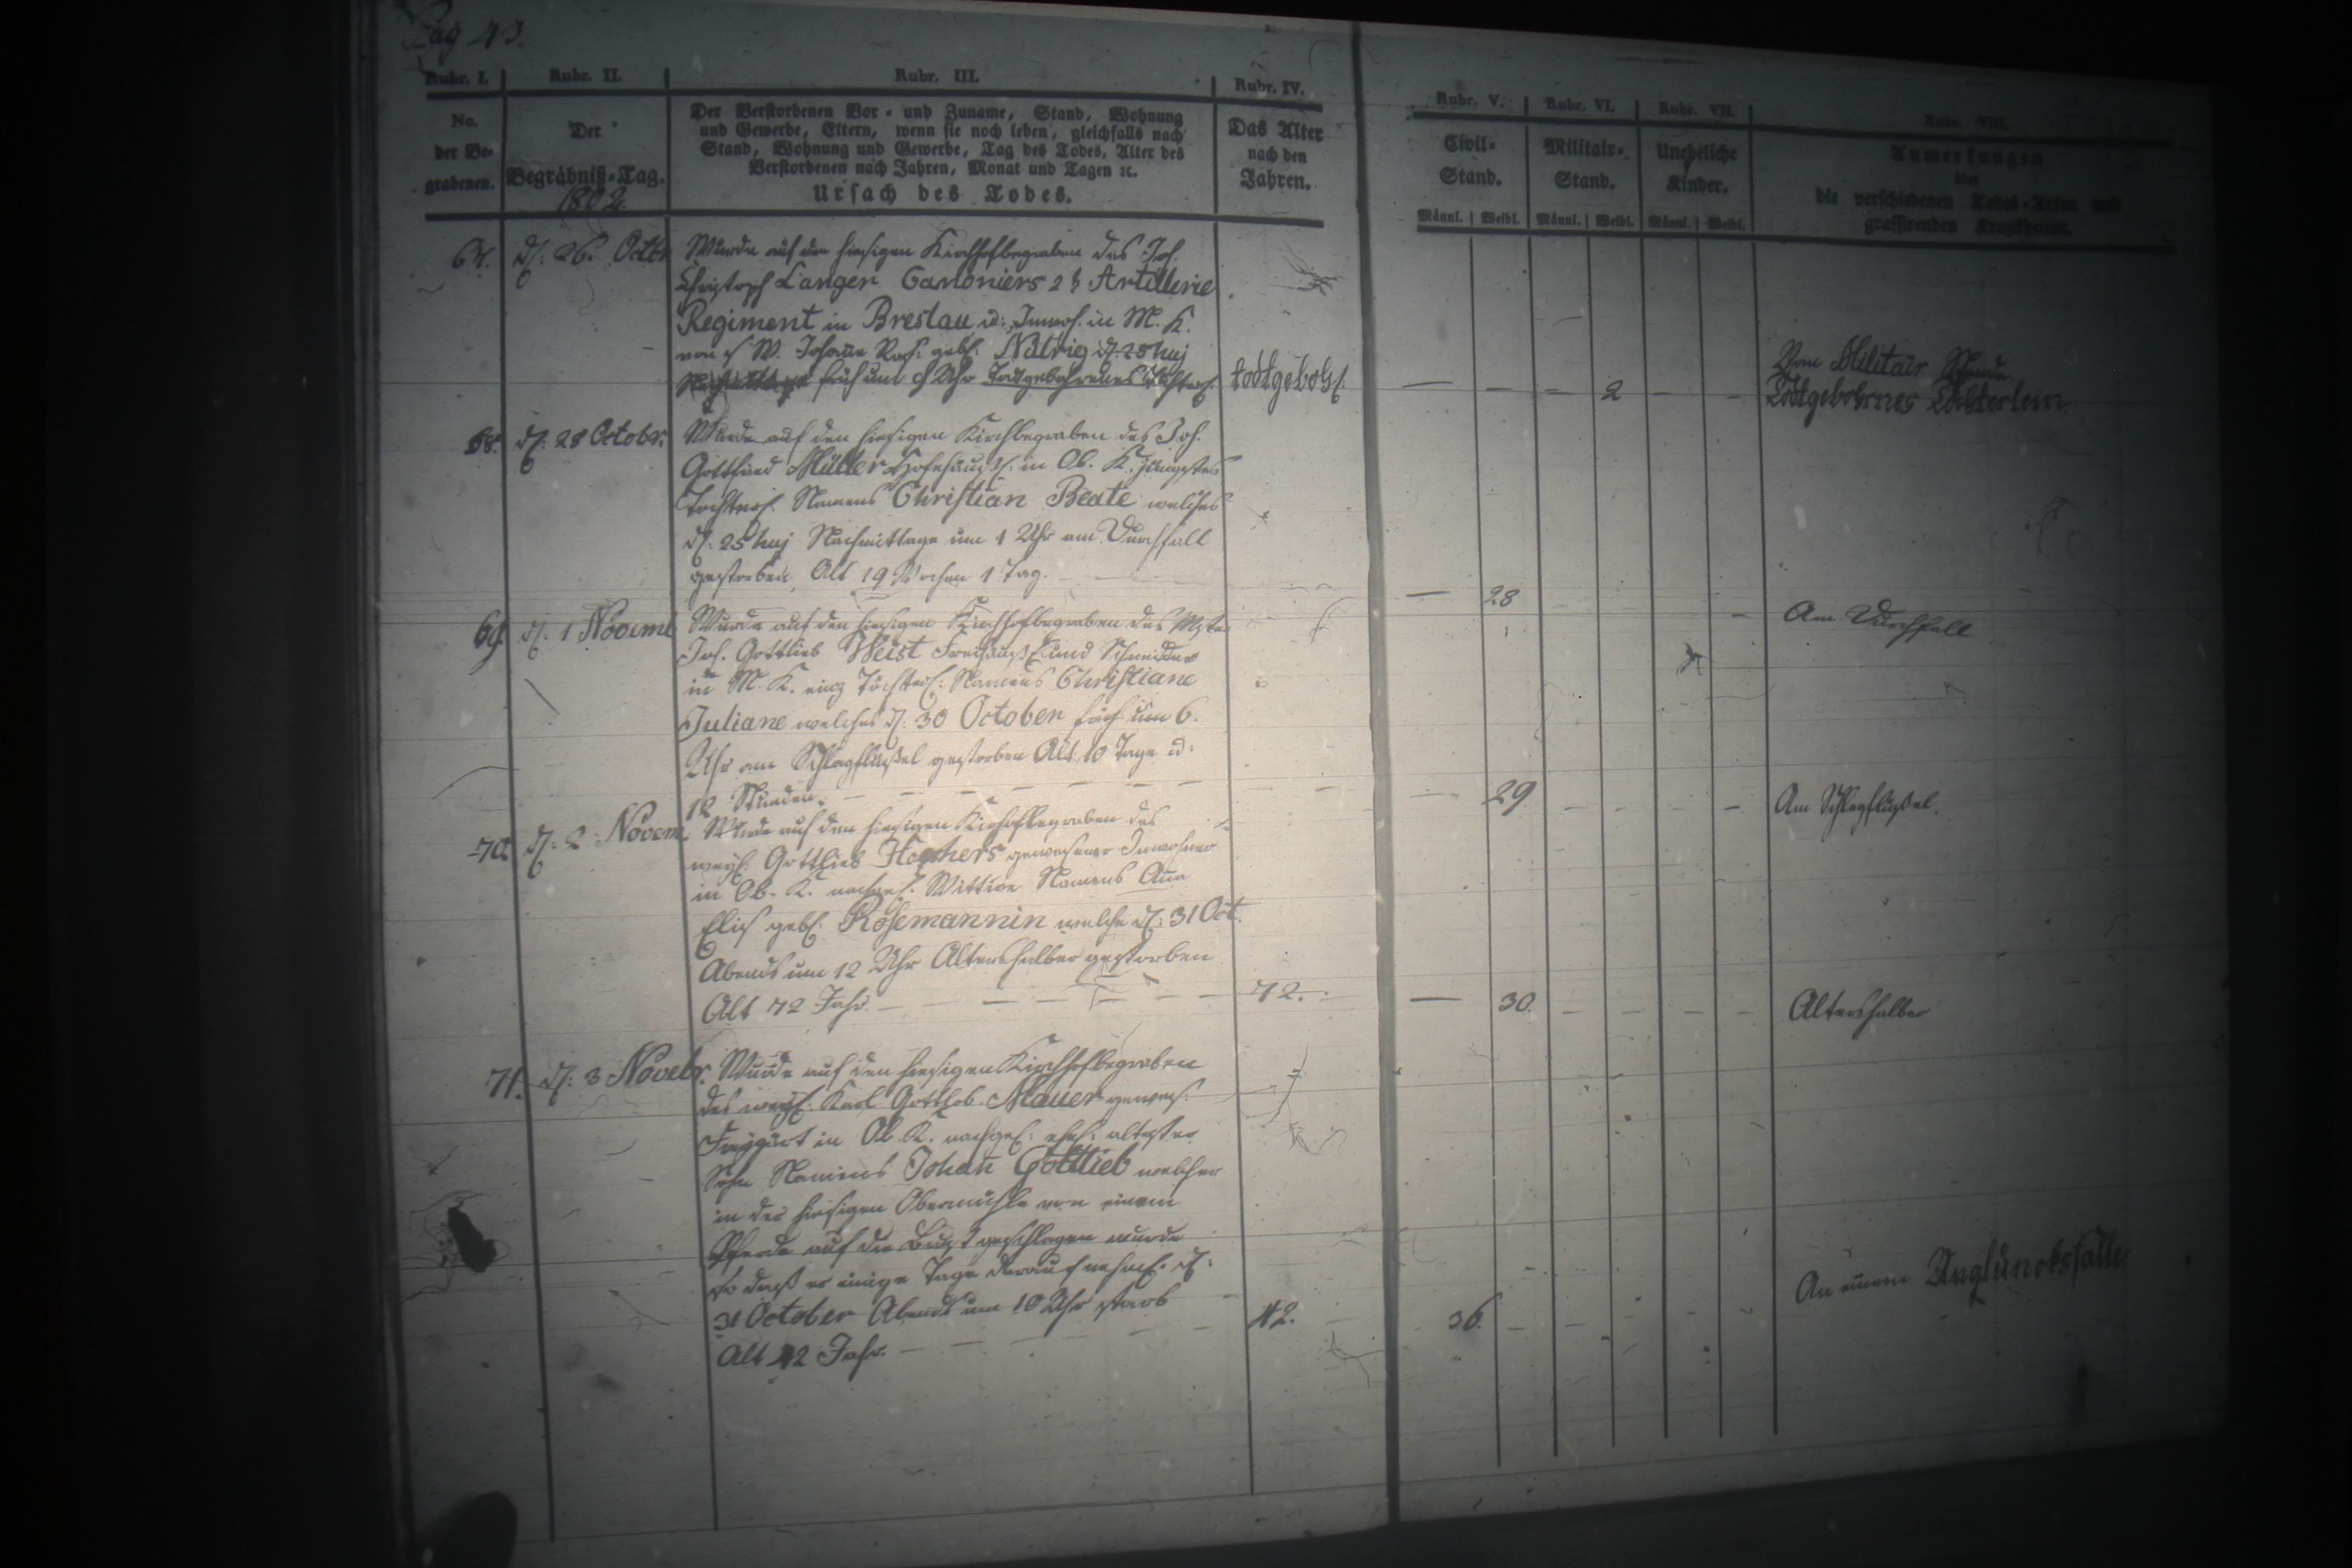 Pag 43.
Rubr. I. Rubr. II. Rubr. III. Rubr. IV. Rubr. V. Rubr. VI. Rubr. VII. Rubr. VIII.
No. der Be-grabenen.
Der Begräbniß-Tag.
1802
Der Verstorbenen Vor- und Zuname, Stand, Wohnung
und Gewerbe, Eltern, wenn sie noch leben, gleichfalls nach
Stand, Wohnung und Gewerbe, Tag des Todes, Alter des
Verstorbenen nach Jahren, Monat und Tagen ꝛc.
Ursach des Todes.
Das Alter
nach den
Jahren.
Civil-
Stand.
Militair-
Stand.
Uneheliche
Kinder.
Männl. Weibl. Männl. Weibl. Männl. Weibl.
Anmerkungen
über
die verschiedenen Todes-Arten und
grassirenden Krankheiten.
d. 26. Octbr
Wurde auf den hiesigen Kirchhof begraben des Joh.
Christoph Langer Canoniers 2t Artillerie
Regiment in Breslau u: Inwoh. in M. K.
früh um Uhr Todgebohrenes Töchterl.
todtgebohr.
2
Vom Militair Stande
Todtgebohrnes Töchterlein
68. d. 28 Octobr.
Wurde auf den hiesigen Kirchbegraben des Joh.
Gottfried Müller Hofehäusl. in Ob. K. jüngstes
Töchterl. Namens Christian Beate welches
d. 25 huj Nachmittags um 1 Uhr am Durchfall
gestorben, Alt 19 Wochen 1 Tag.
28
Am Durchfall
69. d. 1 Novemb
Wurde auf den hiesigen Kirchhof begraben des Mstr
Joh. Gottlieb Weist Freihäusl. und Schneider
in M. K. einz Töchterl: Namens Christiane
Juliane welches d. 30 October früh um 6.
Uhr am Schlagflüßel gestorben Alt 10 Tage u:
12 Stunden.
29
Am Schlagflüßel.
70. d. 2 Novem.
Wurde auf den hiesigen Kirchhof begraben des
weyl. Gottlieb gewesener Inwohner
in Ob. K. nachgel. Wittwe Namens Aña
Elis gebl. Rösemannin welche d: 31 Oct.
Abends um 12 Uhr Altershalber gestorben
Alt 72 Jahr.
72.
30.
Altershalber
71. d: 3 Novebr.
Wurde auf den hiesigen Kirchhof begraben
des weyl: Karl Gottlob Mauer gewes.
in Ob. K. nachgel: ehel: altester
Sohn Namens Johañ Gottlieb welcher
in der hiesigen Obermühle von einem
Pferde auf die Brust geschlagen wurde
so daß er einige Tage darauf nehml. d:
31 October Abends um 10 Uhr starb
Alt 42 Jahr.
42.
36.
An einem Unglücksfalle